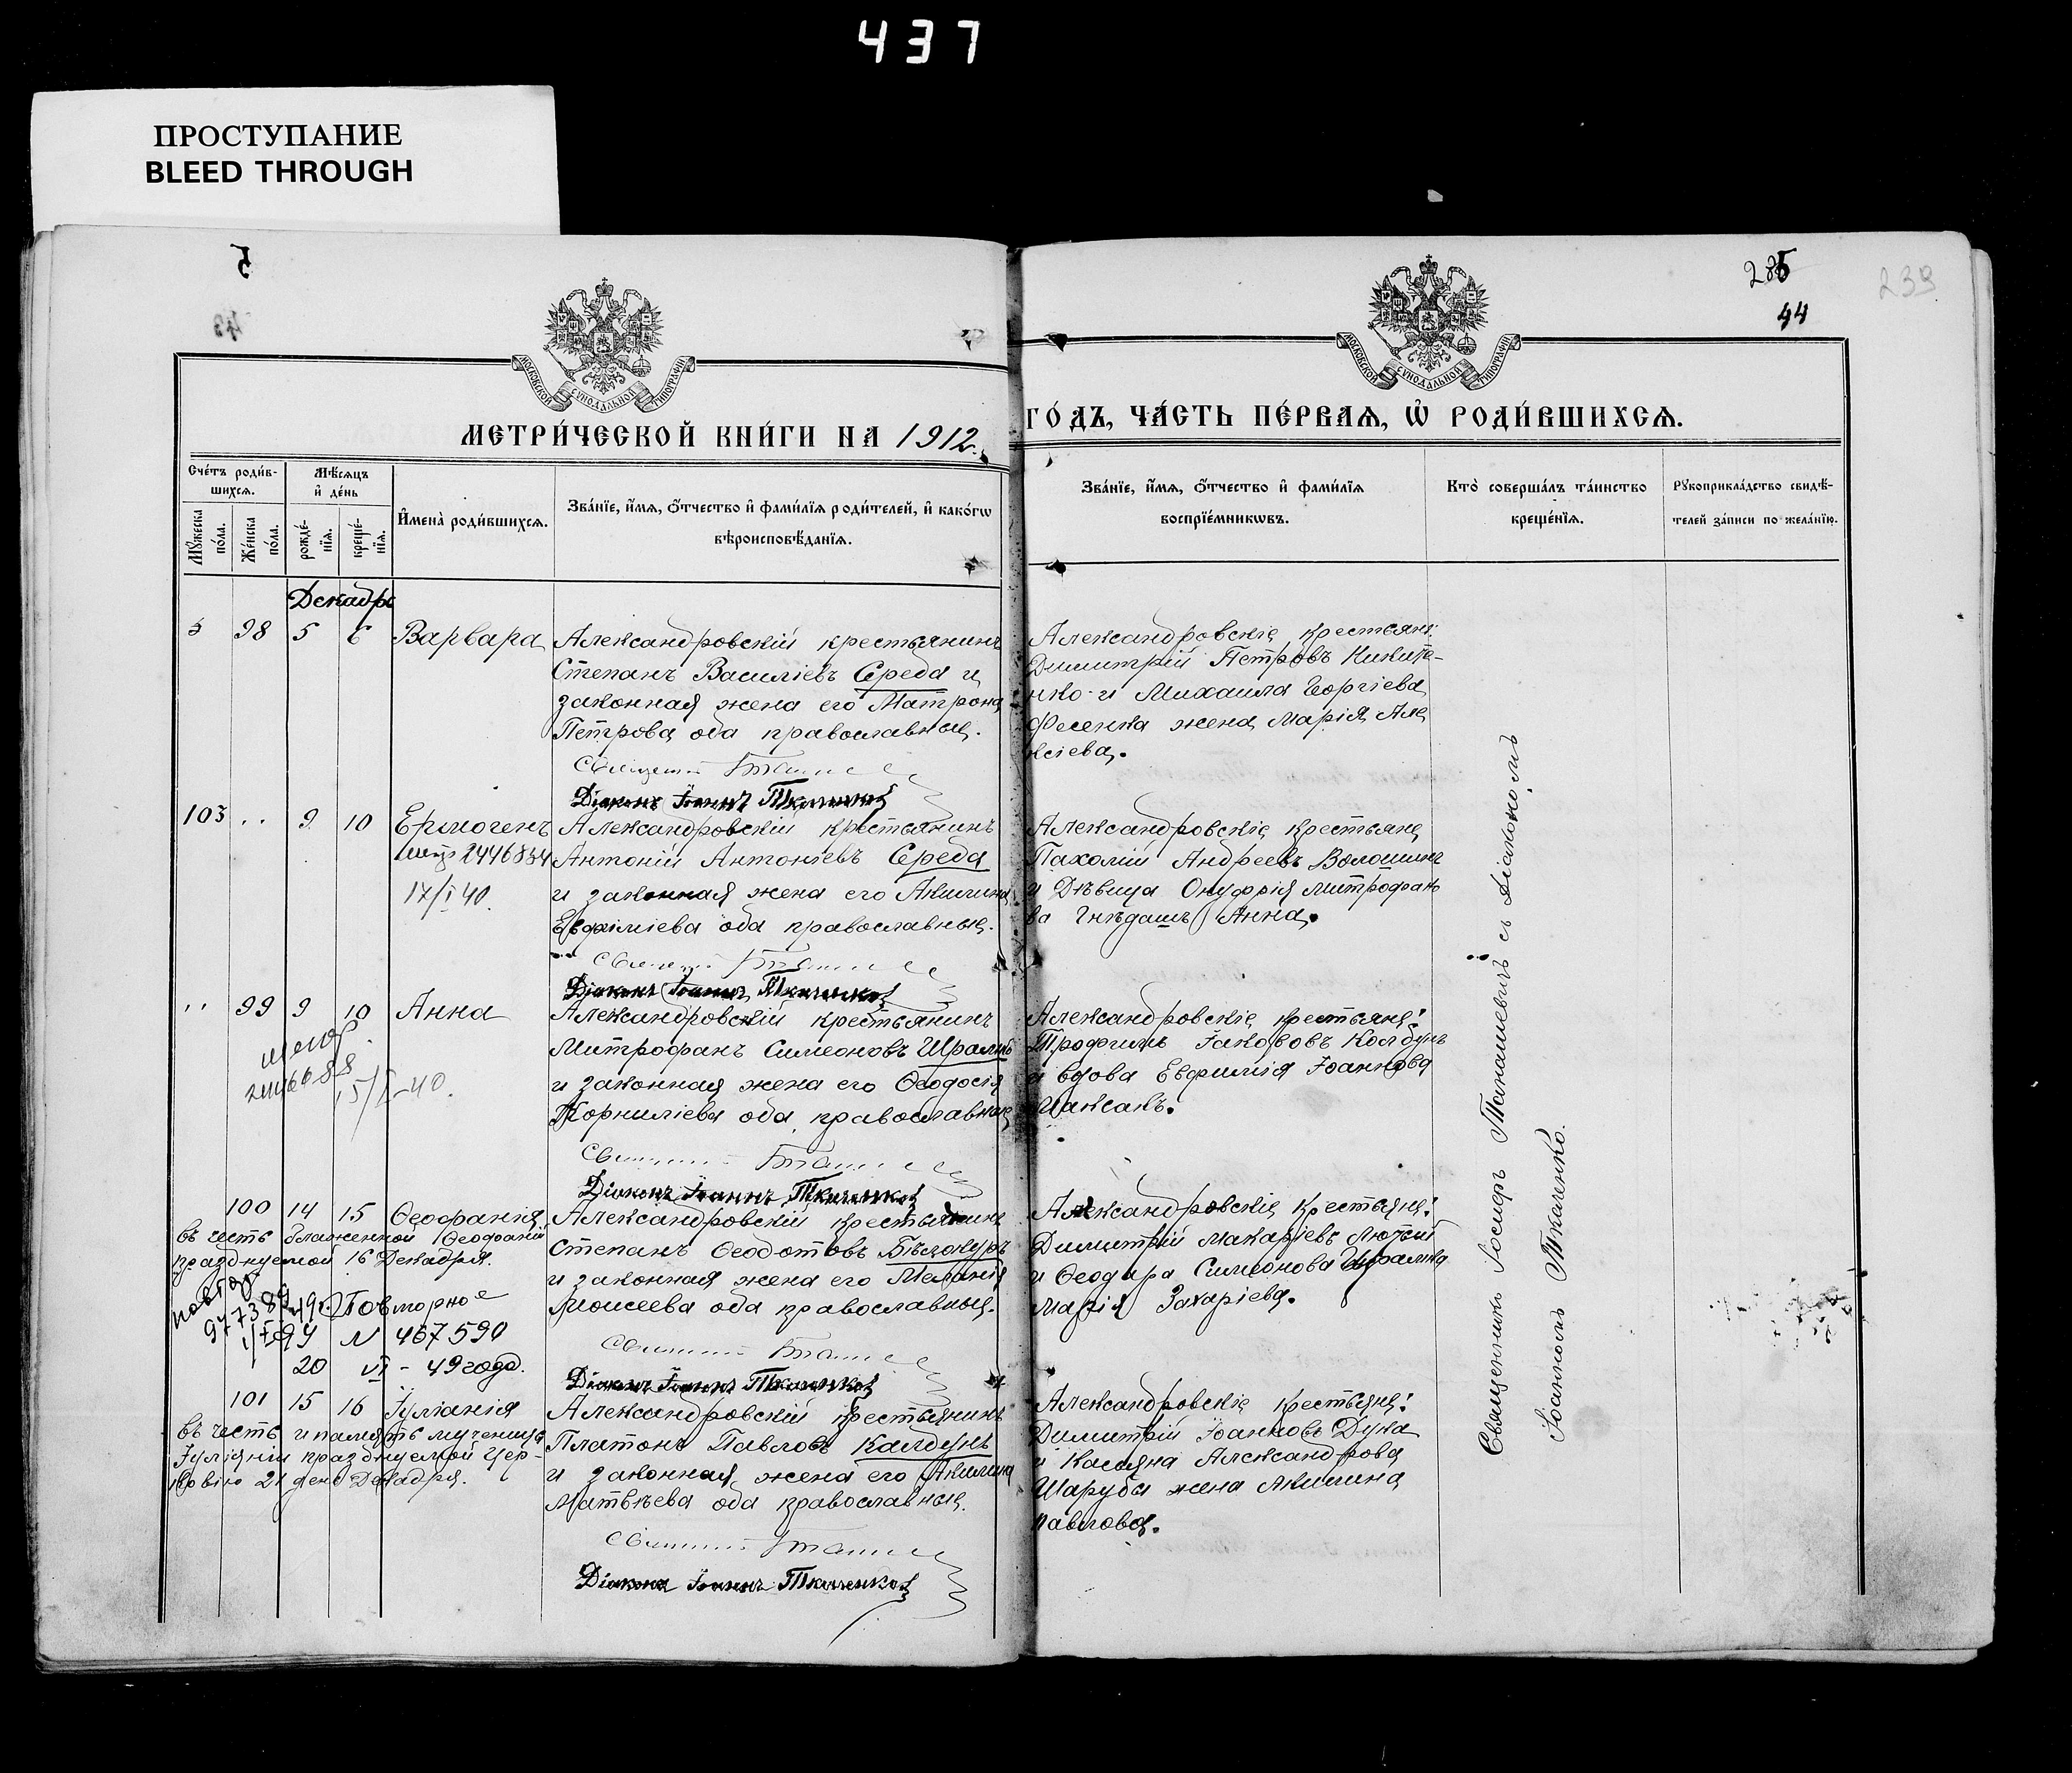 437
ПРОСТУПАНИЕ
BLEED THROUGH
5
285
239
44
МОСКОВСКОЙ СѴНОДАЛЬНОЙ ТИПОГРАФІИ
МОСКОВСКОЙ СѴНОДАЛЬНОЙ ТИПОГРАФІИ
МЕТРИ́ЧЕСКОЙ КНИ́ГИ НА 1912
ГО́ДЪ, ЧА́СТЬ ПЕ́РВАЯ, Ѡ РОДИ́ВШИХСЯ.
Сче́тъ роди́в-
шихся.
Мѣ́сяцъ
и де́нь
Му́жеска
по́ла.
Же́нска
по́ла.
рожде́-
нїя.
креще́-
нїя.
Имена̀ роди́вшихся.
Зва́нїе, и́мя, о́тчество и фами́лїя роди́телей, и како́гѡ
вѣроисповѣ́данїя.
Зва́нїе, и́мя, о́тчество и фами́лїя
воспрїе́мникѡвъ.
Кто̀ соверша́лъ та́инство
креще́нїя.
Рꙋкоприкла́дство свидѣ́-
телей за́писи по жела́нїю.
Декабрь
98 5 6 Варвара
Александровскій крестьянинъ
Степанъ Василіевъ Середа и
законная жена его Матрона
Петрова оба православные.
Діаконъ Іоаннъ Ткаченко
Александровскіе крестьяне:
Димитрій Петровъ Никите-
нко и Михаила Георгіева
Фесенка жена Марія Але
ксіева.
103 " 9 10 Ермогенъ
2446834
17/I 40.
Александровскій крестьянинъ
Антоній Антоніевъ Середа
и законная жена его Акилина
Евфиміева оба православные.
Діаконъ Іоаннъ Ткаченко
Александровскіе крестьяне
Пахомій Андреевъ Волошинъ
и Дѣвица Онуфрія Митрофано
ва Гнѣдашъ Анна.
" 99 9 10 Анна
15/I-40.
Александровскій крестьянинъ
Митрофанъ Симеоновъ Шрамко
и законная жена его Ѳеодосія
Корниліева оба православные
Діаконъ Іоаннъ Ткаченко
Александровскіе крестьяне:
Трофимъ Іаковъ Колдунъ
и вдова Евфимія Іоаннова
100 14 15 Ѳеофанія
въ честь блаженной Ѳеофаніи
празднуемой 16 Декабря.
Повторное
N 467590
20 VI - 49 года.
Александровскій крестьянинъ
Степанъ Ѳеодотовъ Бѣсокуръ
и законная жена его Меланія
Моисеева оба православные.
Діаконъ Іоаннъ Ткаченко
Александровскіе крестьяне:
Димитрій Макаріевъ Лютый
и Ѳеодора Симеонова Шрамка
Марія Захаріева.
101 15 16 Іуліанія
въ честь и память мученицы
Іуліаніи празднуемой Цер-
ковію 21 день Декабря.
Александровскій крестьянинъ
Платонъ Павловъ Калдунъ
и законная жена его Акилина
Матвѣева оба православные.
Діаконъ Іоаннъ Ткаченко
Александровскіе крестьяне:
Димитрій Іоанновъ Дука
и Касіяна Александрова
Шарубы жена Акилина
Павлова.
Священникъ Іосифъ Танашевичъ съ Діакономъ
Іоанномъ Ткаченко.